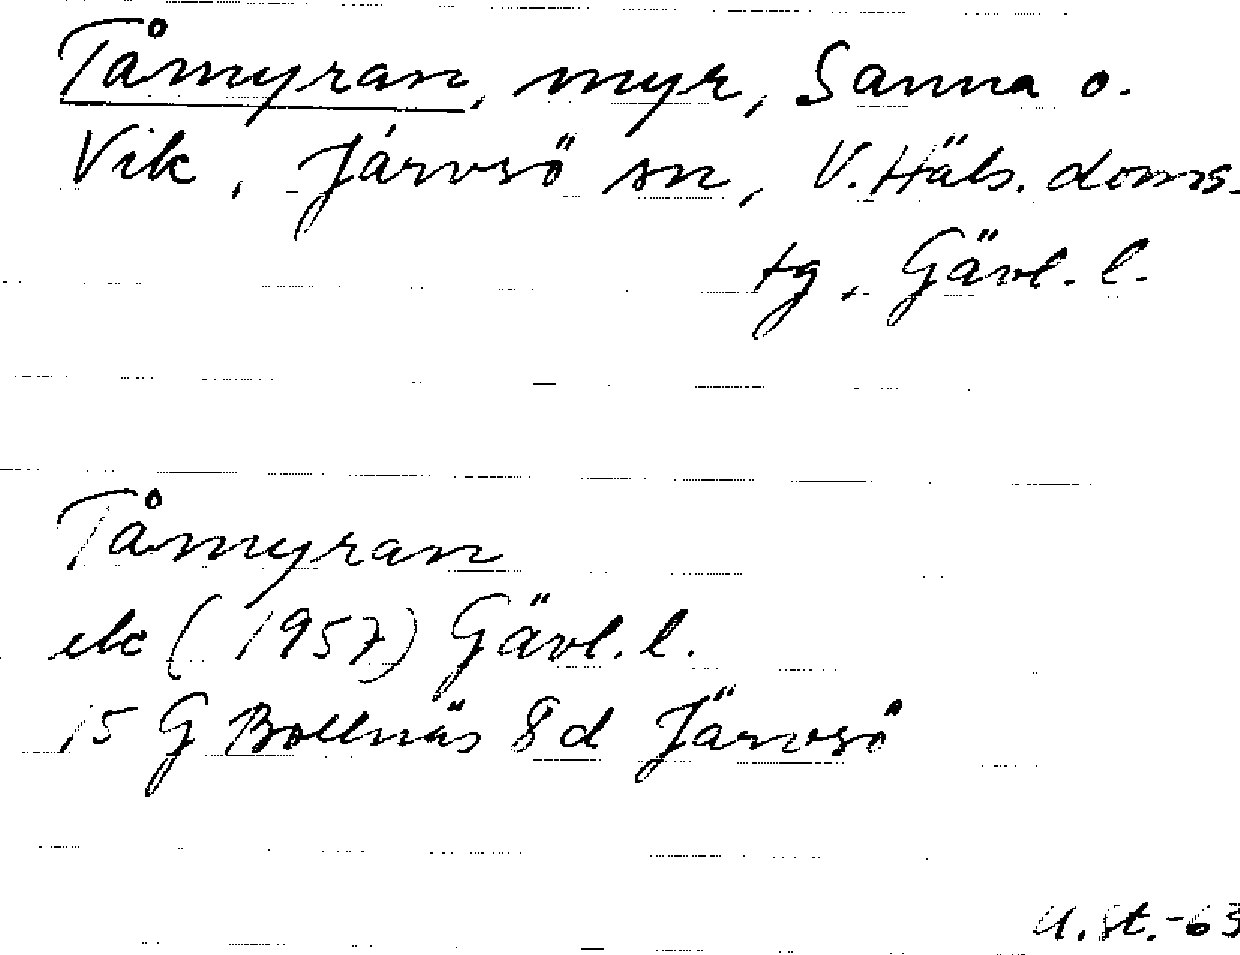 Tåmyran, myr, Sanna o.
Vik, Järvsö sn, V. Häls. doms.
tg, Gävl. l.
Tåmyran
ek (1957) Gävl. l.
15 G Bollnäs 8d Järvsö
U. St. -63